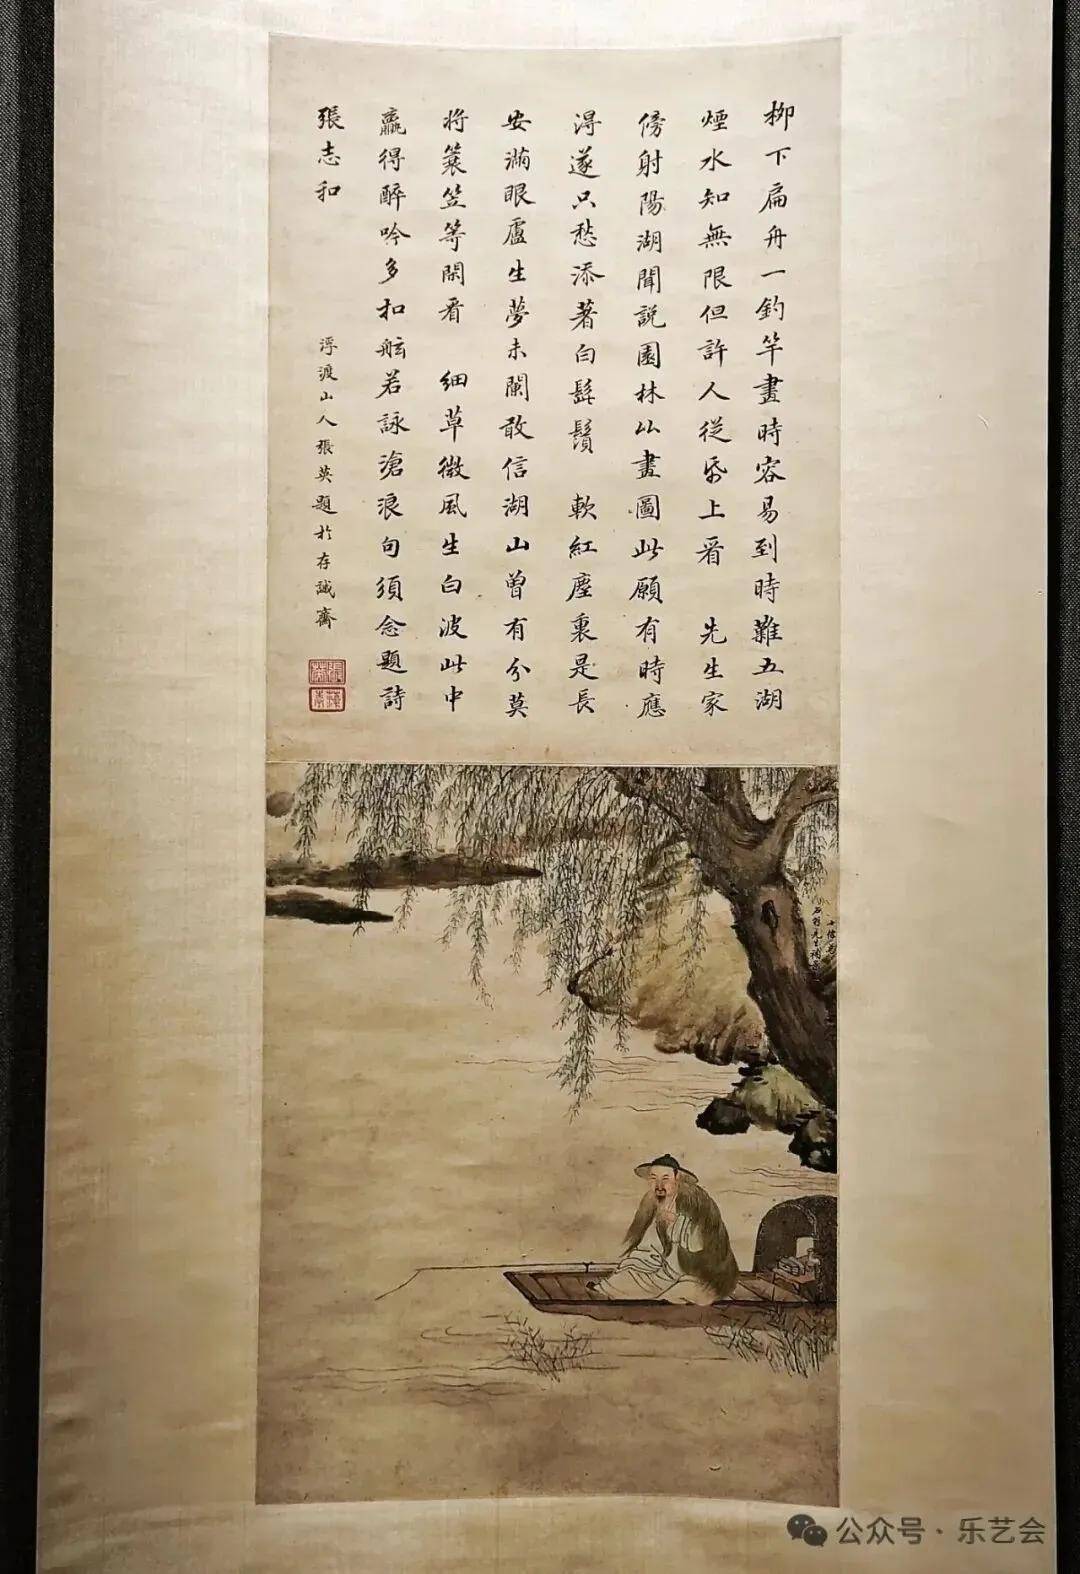 柳下扁舟一釣竿畫時容易到時難五湖
煙水知無限但許人從帋上看 先生家
傍射陽湖聞說園林似畫圖此願有時應
得遂只愁添著白髭鬚 軟紅塵裏是長
安滿眼盧生夢未闌敢信湖山曾有分莫
将蓑笠等閑看 細草微風生白波此中
贏得醉吟多扣舷若詠滄浪句須念題詩
張志和
浮渡山人張英題於存誠齋
公众号·乐艺会